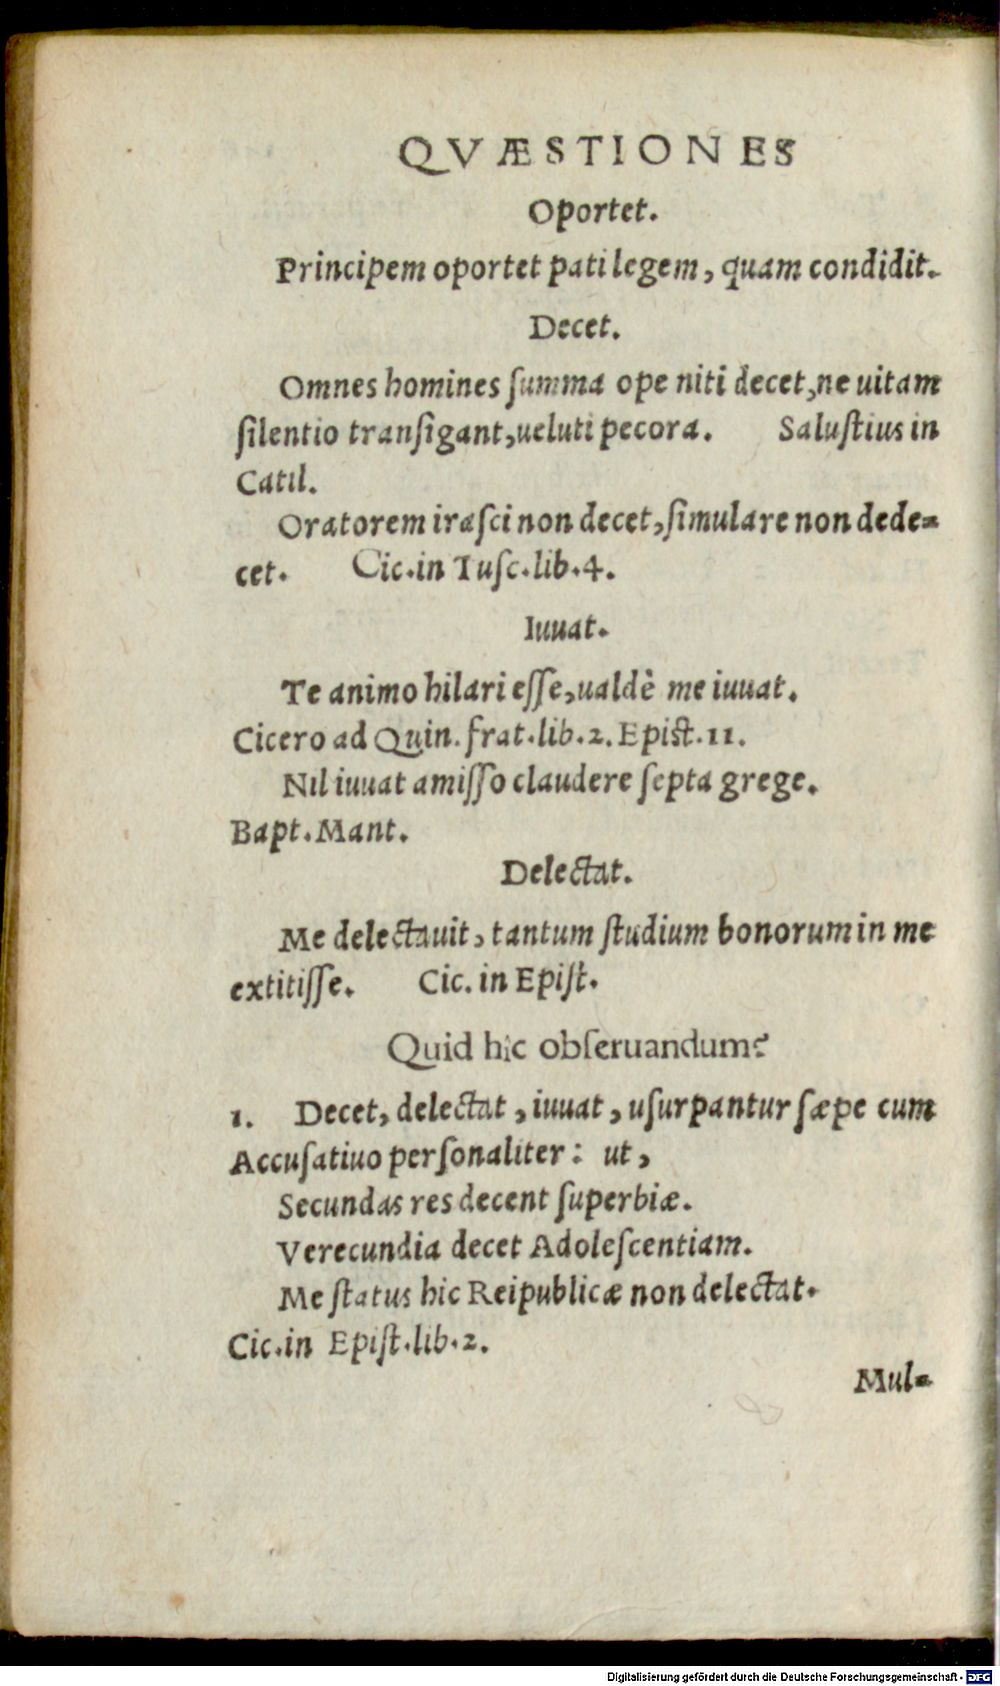 QVÆSTIONES
Oportet.
Principem oportet pati legem, quam condidit.
Decet.
Omnes homines ſumma ope niti decet, ne uitam
ſilentio tranſigant, ueluti pecora. Saluſtius in
Catil.
Oratorem iraſci non decet, ſimulare non dede-
cet. Cic. in Tuſc. lib. 4.
Iuuat.
Te animo hilari eſſe, ualdè me iuuat.
Cicero ad Quin. frat. lib. 2. Epist. 11.
Nil iuuat amiſſo claudere ſepta grege.
Bapt. Mant.
Delectat.
Me delectauit, tantum ſtudium bonorum in me
extitiſſe. Cic. in Epiſt.
Quid hic obſeruandum?
1. Decet, delectat, iuuat, uſurpantur ſæpe cum
Accuſatiuo perſonaliter: ut,
Secundas res decent ſuperbiæ.
Verecundia decet Adoleſcentiam.
Me ſtatus hic Reipublicæ non delectat.
Cic. in Epiſt. lib. 2.
Mul-
Digitalisierung gefördert durch die Deutsche Forschungsgemeinschaft - DFG